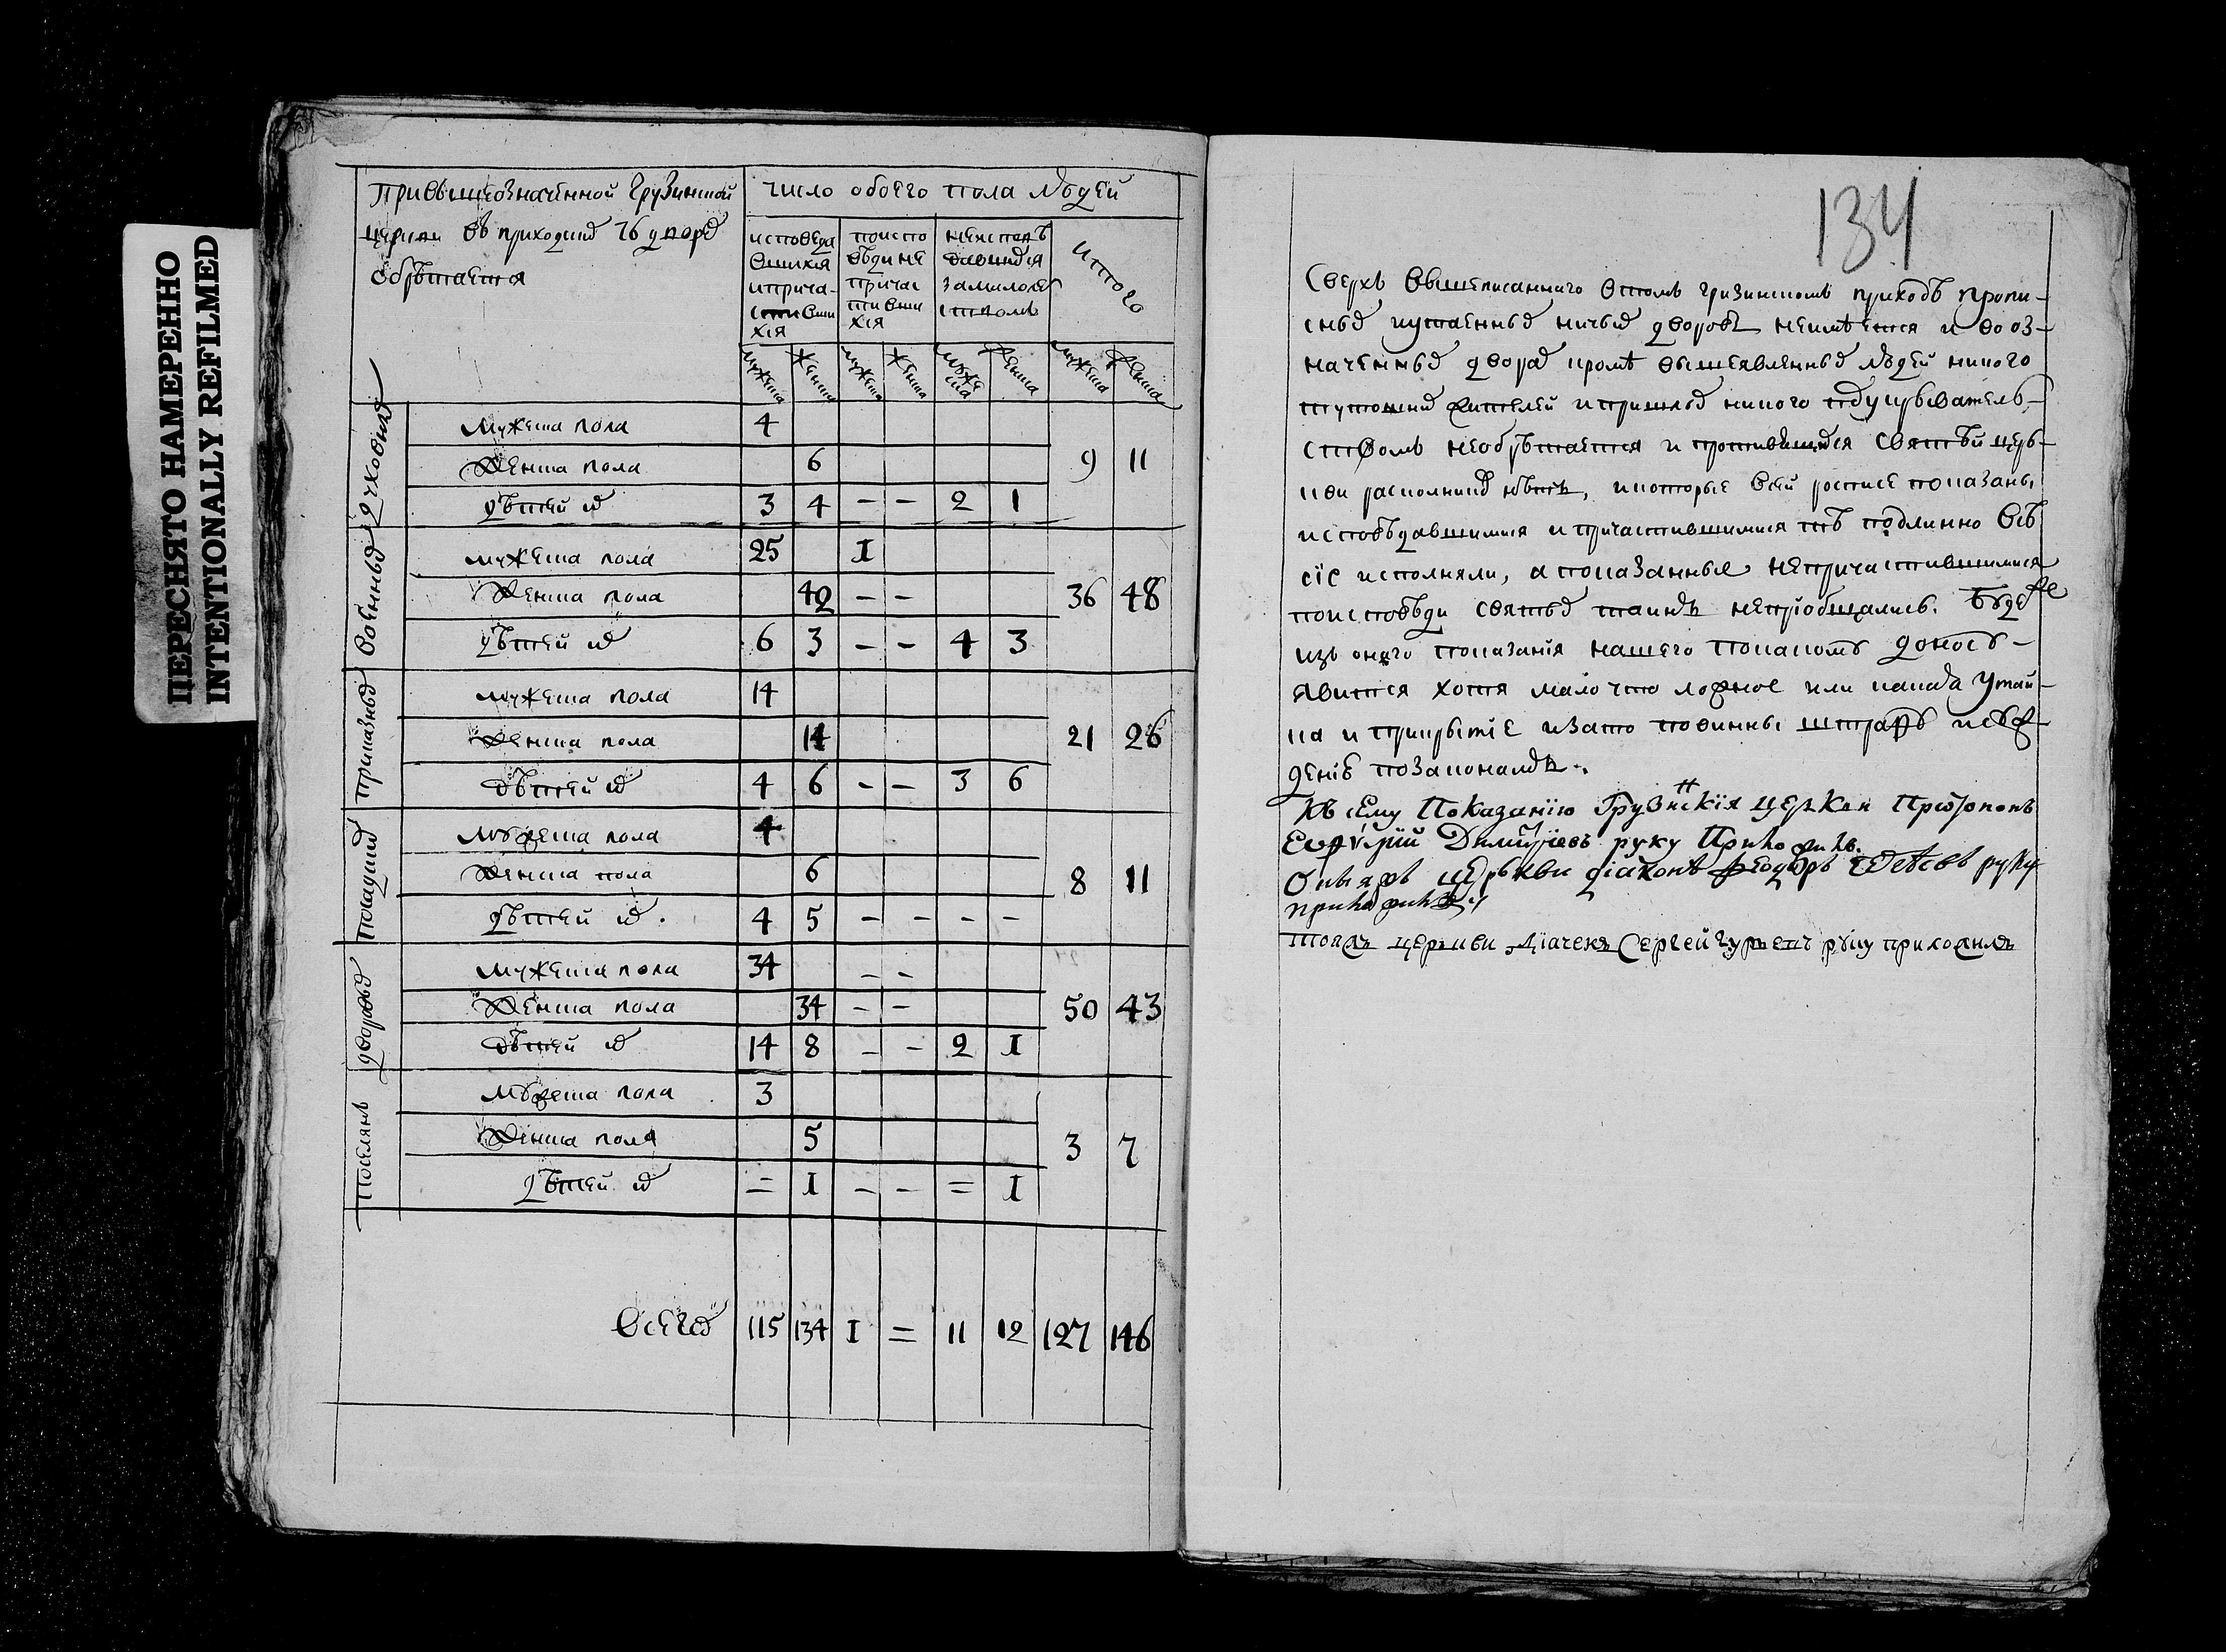 ПЕРЕСНЯТО НАМЕРЕННО
INTENTIONALLY REFILMED
при вышеозначенной грузинской
церкви въ приходских 76 дворѣх
обрѣтается
число обоего пола людей
исповеда
вшихся
и прича
стивши
хся
поиспо
вѣди не
причас
тивши
хся
неисповѣ
давшихся
за малолѣт
ством
итого
мужеска женска мужеска женска мужеска женска мужеска женска
духовных
мужеска пола 4
женска пола 6
дѣтей их 3 4 – – 2 1
9 11
военных
мужеска пола 25 I
женска пола 42 – –
дѣтей их 6 3 – – 4 3
36 48
приказных
мужеска пола 14
женска пола 14
дѣтей их 4 6 – – 3 6
21 26
посацких
мужеска пола 4
женска пола 6
дѣтей их 4 5 – – – –
8 11
дворовых
мужеска пола 34 – –
женска пола 34 – –
дѣтей их 14 8 – – 2 I
50 43
поселянъ
мужеска пола 3
женска пола 5
дѣтей их = I – – = I
3 7
всего 115 134 I = 11 12 127 146
134
Сверхъ вышеписанного втомъ грузинскомъ приходѣ пропи-
сных иутаенных ничьих дворовъ неимѣется и во оз-
наченных дворах кромѣ вышеявленных людей никого
тутошних жителей ипришлых никого подукрывателъ-
ствомъ необрѣтается и противящихся святѣй церъ-
кви расколников нѣтъ, икоторые всей росписе показаны
исповѣдавшимися и причастившимися тѣ подлинно всѣ
сїе исполняли, а показанные непричастившимися
поисповѣди святых таинъ неприобщались. буде же
изъ оного показанїя нашего покакомъ доносѣ-
явится хотя малочто ложное или какая утай-
ка и прикрытїе изато повинны штрафъ исуж-
денїе позаконамъ.
Къ сему показанїю Грузинскїя церкви Протопопъ
Георгїй Димитрїевъ руку приложилъ.
Оныя жъ церькви дїаконъ Феодоръ руку
приложилъ
тояж церькви дїачекъ Сергей Гурьевъ руку приложилъ